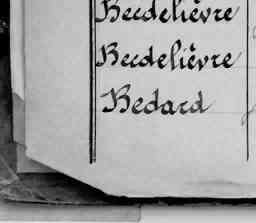 Becdelièvre
Becdelièvre
Bedard